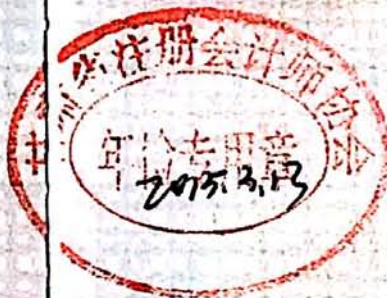 省注册会计师协会
年检专用章
2015.3.13